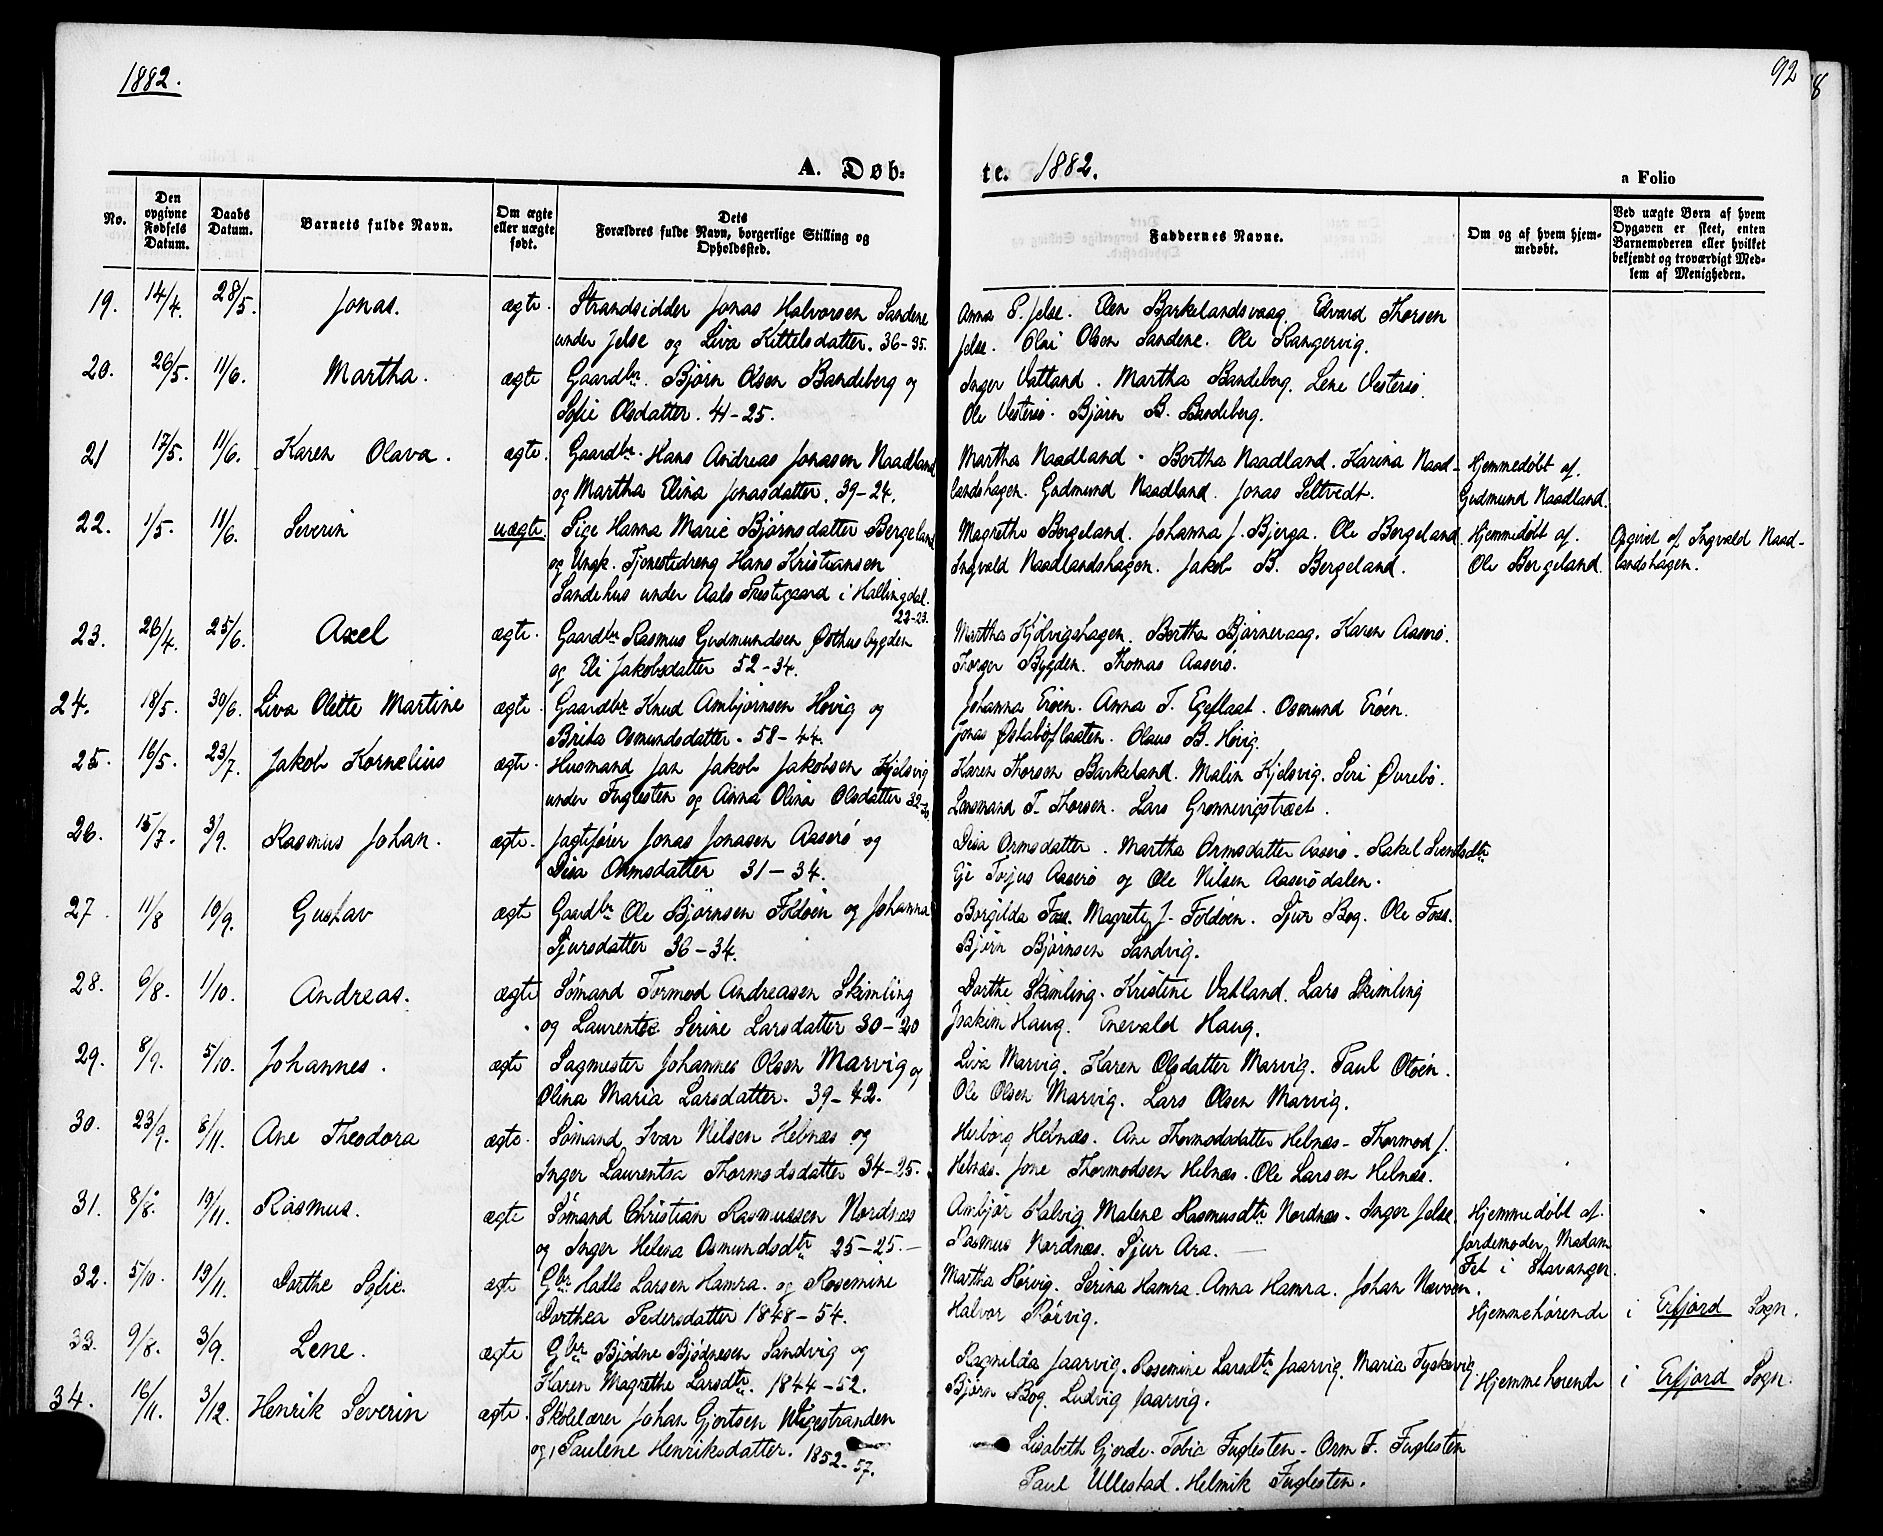 1882.
92
8
A. Døb-
te. 1882.
a Folio
No.
Den opgivne Fødsels Datum.
Daabs Datum.
Barnets fulde Navn.
Om ægte eller uægte født.
Dets Forældres fulde Navn, borgerlige Stilling og Opholdssted.
Faddernes Navne.
Om og af hvem hjemmedøbt.
Ved uægte Børn af hvem Opgaven er skeet, enten Barnemoderen eller hvilket bekjendt og troværdigt Medlem af Menigheden.
19. 14/4. 28/5. Jonas. ægte. Strandsidder Jonas Halvorsen Sandene
under Jelse og Liva Kittelsdatter. 36-35.
Anna S. Jelse. Elen Barkelandsvaag. Edvard Thorsen
Jelse. Olai Olsen Sandene. Ole Kangervig.
20. 26/5. 11/6. Martha. ægte Gaardbr. Bjørn Olsen Bandeberg og
Sofie Olsdatter. 41-25.
Inger Vatland. Martha Bandeberg. Lene Vestersø.
Ole Vestersø. Bjørn B. Bandeberg.
21 17/5. 11/6. Karen Olava. ægte. Gaardbr. Hans Andreas Jonasen Naadland
og Martha Elina Jonasdatter. 39-24.
Martha Naadland. Bertha Naadland. Karina Naad-
landshagen. Gudmund Naadland. Jonas Seltvedt.
Hjemmedøbt af.
Gudmund Naadland.
22. 1/5. 11/6. Severin uægte. Pige Hanna Marie Bjørnsdatter Bergeland
og Ungk. Tjenestedreng Hans Kristiansen
Sandehus under Aals Prestegaard i Hallingdal.
22-23.
Magrethe Bergeland. Johanna J. Bjerga. Ole Bergeland.
Ingvald Naadlandshagen. Jakob B. Bergeland.
Hjemmedøbt af.
Ole Bergeland.
Opgivet af Ingvald Naad-
landshagen.
23. 26/4. 25/6. Axel ægte. Gaardbr Rasmus Gudmundsen Østhusbygden
og Eli Jakobsdatter 52-34.
Martha Kjølvigshagen. Bertha Bjørnevaag. Karen Aaserø.
Torger Bygden. Thomas Aaserø.
24. 18/5. 30/6. Liva Olette Martine ægte. Gaardbr Knud Ambjørnsen Høvig og
Brita Osmundsdatter. 58-44.
Johanna Erøen. Anna T. Egeflaat. Osmund Erøen.
Jonas Østabøflaaten. Olaus B. Høvig.
25. 16/5. 23/7. Jakob Kornelius ægte. Husmand Jan Jakob Jakobsen Kjelsvig
under Fuglesten og Anna Olina Olsdatter
Karen Thorsen Barkeland. Malin Kjelsvig. Seri Øvrebø.
Lensmand T. Thorsen. Lars Grønnevigstræet.
26. 15/7. 3/9. Rasmus Johan. ægte. Jagtefører Jonas Jonasen Aaserø og
Disa Ormsdatter 31-34.
Disa Ormsdatter. Martha Ormsdatter Aaserø. Rakel Svendsdtr
Eje Torjus Aaserø og Ole Nilsen Aaserødalen.
27 11/8 10/9. Gustav ægte Gaardbr Ole Bjørnsen Foldøen og Johanna
Sjursdatter 36-34.
Borgilda Foss. Magrete J. Foldøen. Sjur Bog. Ole Foss.
Bjørn Bjørnsen Sandvig.
28. 6/8. 1/10. Andreas. ægte Sømand Tormod Andreasen Skimling
og Laurentse Serine Larsdatter 30-20
Dorthe Skimling. Kristine Vatland. Lars Skimling
Joakim Haug. Enevald Haug.
29. 8/9. 5/10. Johannes. ægte Sagmester Johannes Olsen Marvig og
Olina Maria Larsdatter. 39-42.
Liva Marvig. Karen Olsdatter Marvig. Paul Oløen.
Ole Olsen Marvig. Lars Olsen Marvig.
30. 23/9. 8/11. Ane Theodora ægte. Sømand Ivar Nilsen Helnæs og
Inger Laurentsa Thormodsdatter 34-25.
Herborg Helnæs. Ane Thormodsdatter Helnæs. Thormod J.
Helnæs. Jone Thormodsen Helnæs. Ole Larsen Helnæs.
31. 8/8. 19/11. Rasmus. ægte Sømand Christian Rasmussen Nordnæs
og Inger Helena Osmundsdtr 25-25.
Ambjør Halvig. Malene Rasmusdtr Nordnæs. Inger Jelse.
Rasmus Nordnæs. Sjur Ara.
Hjemmedøbt af.
Jordemoder, Madam
Fet i Stavanger.
32. 5/10. 19/11. Dorthe Sofie. ægte Gbr Hadle Larsen Hamra. og Rosemine
Dorthea Pedersdatter 1848-54.
Martha Rørvig. Serina Hamra. Anna Hamra. Johan Nævøen.
Halvor Rørvig.
Hjemmehørende i Erfjord Sogn.
33. 9/8. 3/9. Lene. ægte Gbr Bjødne Bjødnesen Sandvig og
Karen Magrethe Larsdtr. 1844-52.
Ragnilda Jaarvig. Rosemine Larsdtr Jaarvig. Maria Tyskevig
Bjørn Bog. Ludvig Jaarvig.
Hjemmehørende i Erfjord Sogn.
34. 16/11. 3/12. Henrik Severin ægte. Skolelærer Johan Gjertsen Vigestranden
og Paulene Henriksdatter. 1852-57.
Lisabeth Gjorde. Tobie Fuglesten. Orm T. Fuglesten
Paul Ullestad. Helmik Fuglesten.